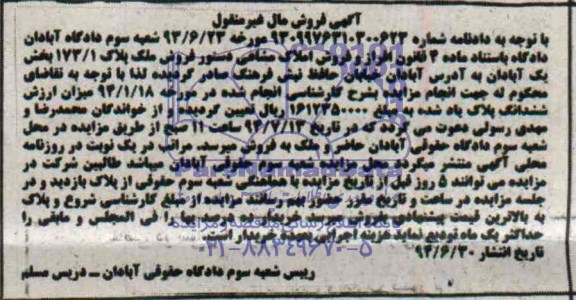 آگهی فروش مال غیرمنقول
با توجه به دادنامه شماره ۹۳۰۹۹۷۶۳۱۰۳۰۰۶۲۳ مورخه ۹۳/۶/۲۳ شعبه سوم دادگاه آبادان
دادگاه باستناد ماده ۴ قانون افراز و فروش املاک مشاعی دستور فروش ملک پلاک ۱۷۳/۱ بخش
یک آبادان به آدرس آبادان خیابان حافظ نبش فرهنگ صادر گردیده لذا با توجه به تقاضای
محکوم له جهت انجام مزایده بشرح کارشناسی انجام شده در مورخه ۹۴/۱/۱۸ میزان ارزش
ششدانگ پلاک یاد شده به مبلغ ۱۶۱۷۳۵۰۰۰۰ ریال تعیین گردیده از خواندگان محمدرضا و
مهدی رسولی دعوت می گردد که در تاریخ ۹۴/۷/۱۳ ساعت ۱۱ صبح از طریق مزایده در محل
شعبه سوم دادگاه حقوقی آبادان حاضر و ملک به فروش میرسد. مراتب در یک نوبت در روزنامه
محلی آگهی منتشر میگردد محل مزایده شعبه سوم حقوقی آبادان میباشد طالبین شرکت در
مزایده می توانند ۵ روز قبل از تاریخ مزایده با هماهنگی شعبه سوم حقوقی از پلاک بازدید و در
جلسه مزایده در ساعت و تاریخ مقرر حضور بهم رسانند مزایده از مبلغ کارشناسی شروع و پلاک
به بالاترین قیمت پیشنهادی بفروش میرسد خریدار ده درصد بها را فی المجلس و مابقی را
حداکثر یک ماه تودیع نماید هزینه اجرائی بعهده خریدار است.
تاریخ انتشار ۹۴/۶/۳۰
رییس شعبه سوم دادگاه حقوقی آبادان ــ دریس مسلم
۰۲۱-۸۸۳۴۹۶۷۰-۵